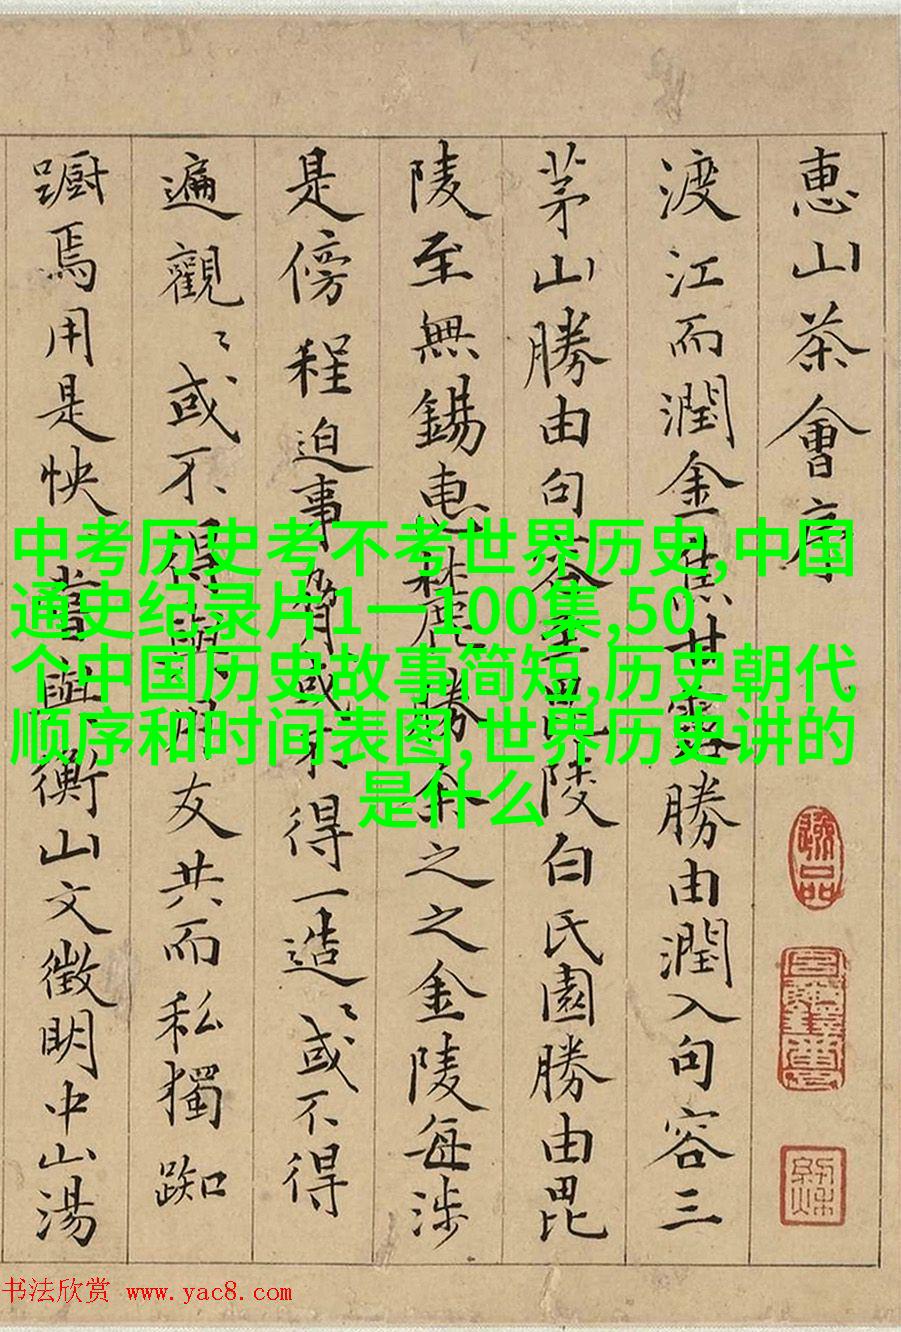 惠山茶會序
渡江而潤金焦甘露勝由潤入句容三
茅山勝由句容至毘陵白氏園勝由毘
陵至無錫恵麓勝余之之金陵每涉
是傍程迫事脅或才得一造〻或不得
遍觀〻或不得與所友共而私獨踟
蹰焉用是怏舊與衡山文徵明中山湯
中考历史考不考世界历史,中国
通史纪录片1一100集,50
个中国历史故事简短,历史朝代
顺序和时间表图,世界历史讲的
是什么
书法欣赏 www.yac8.com